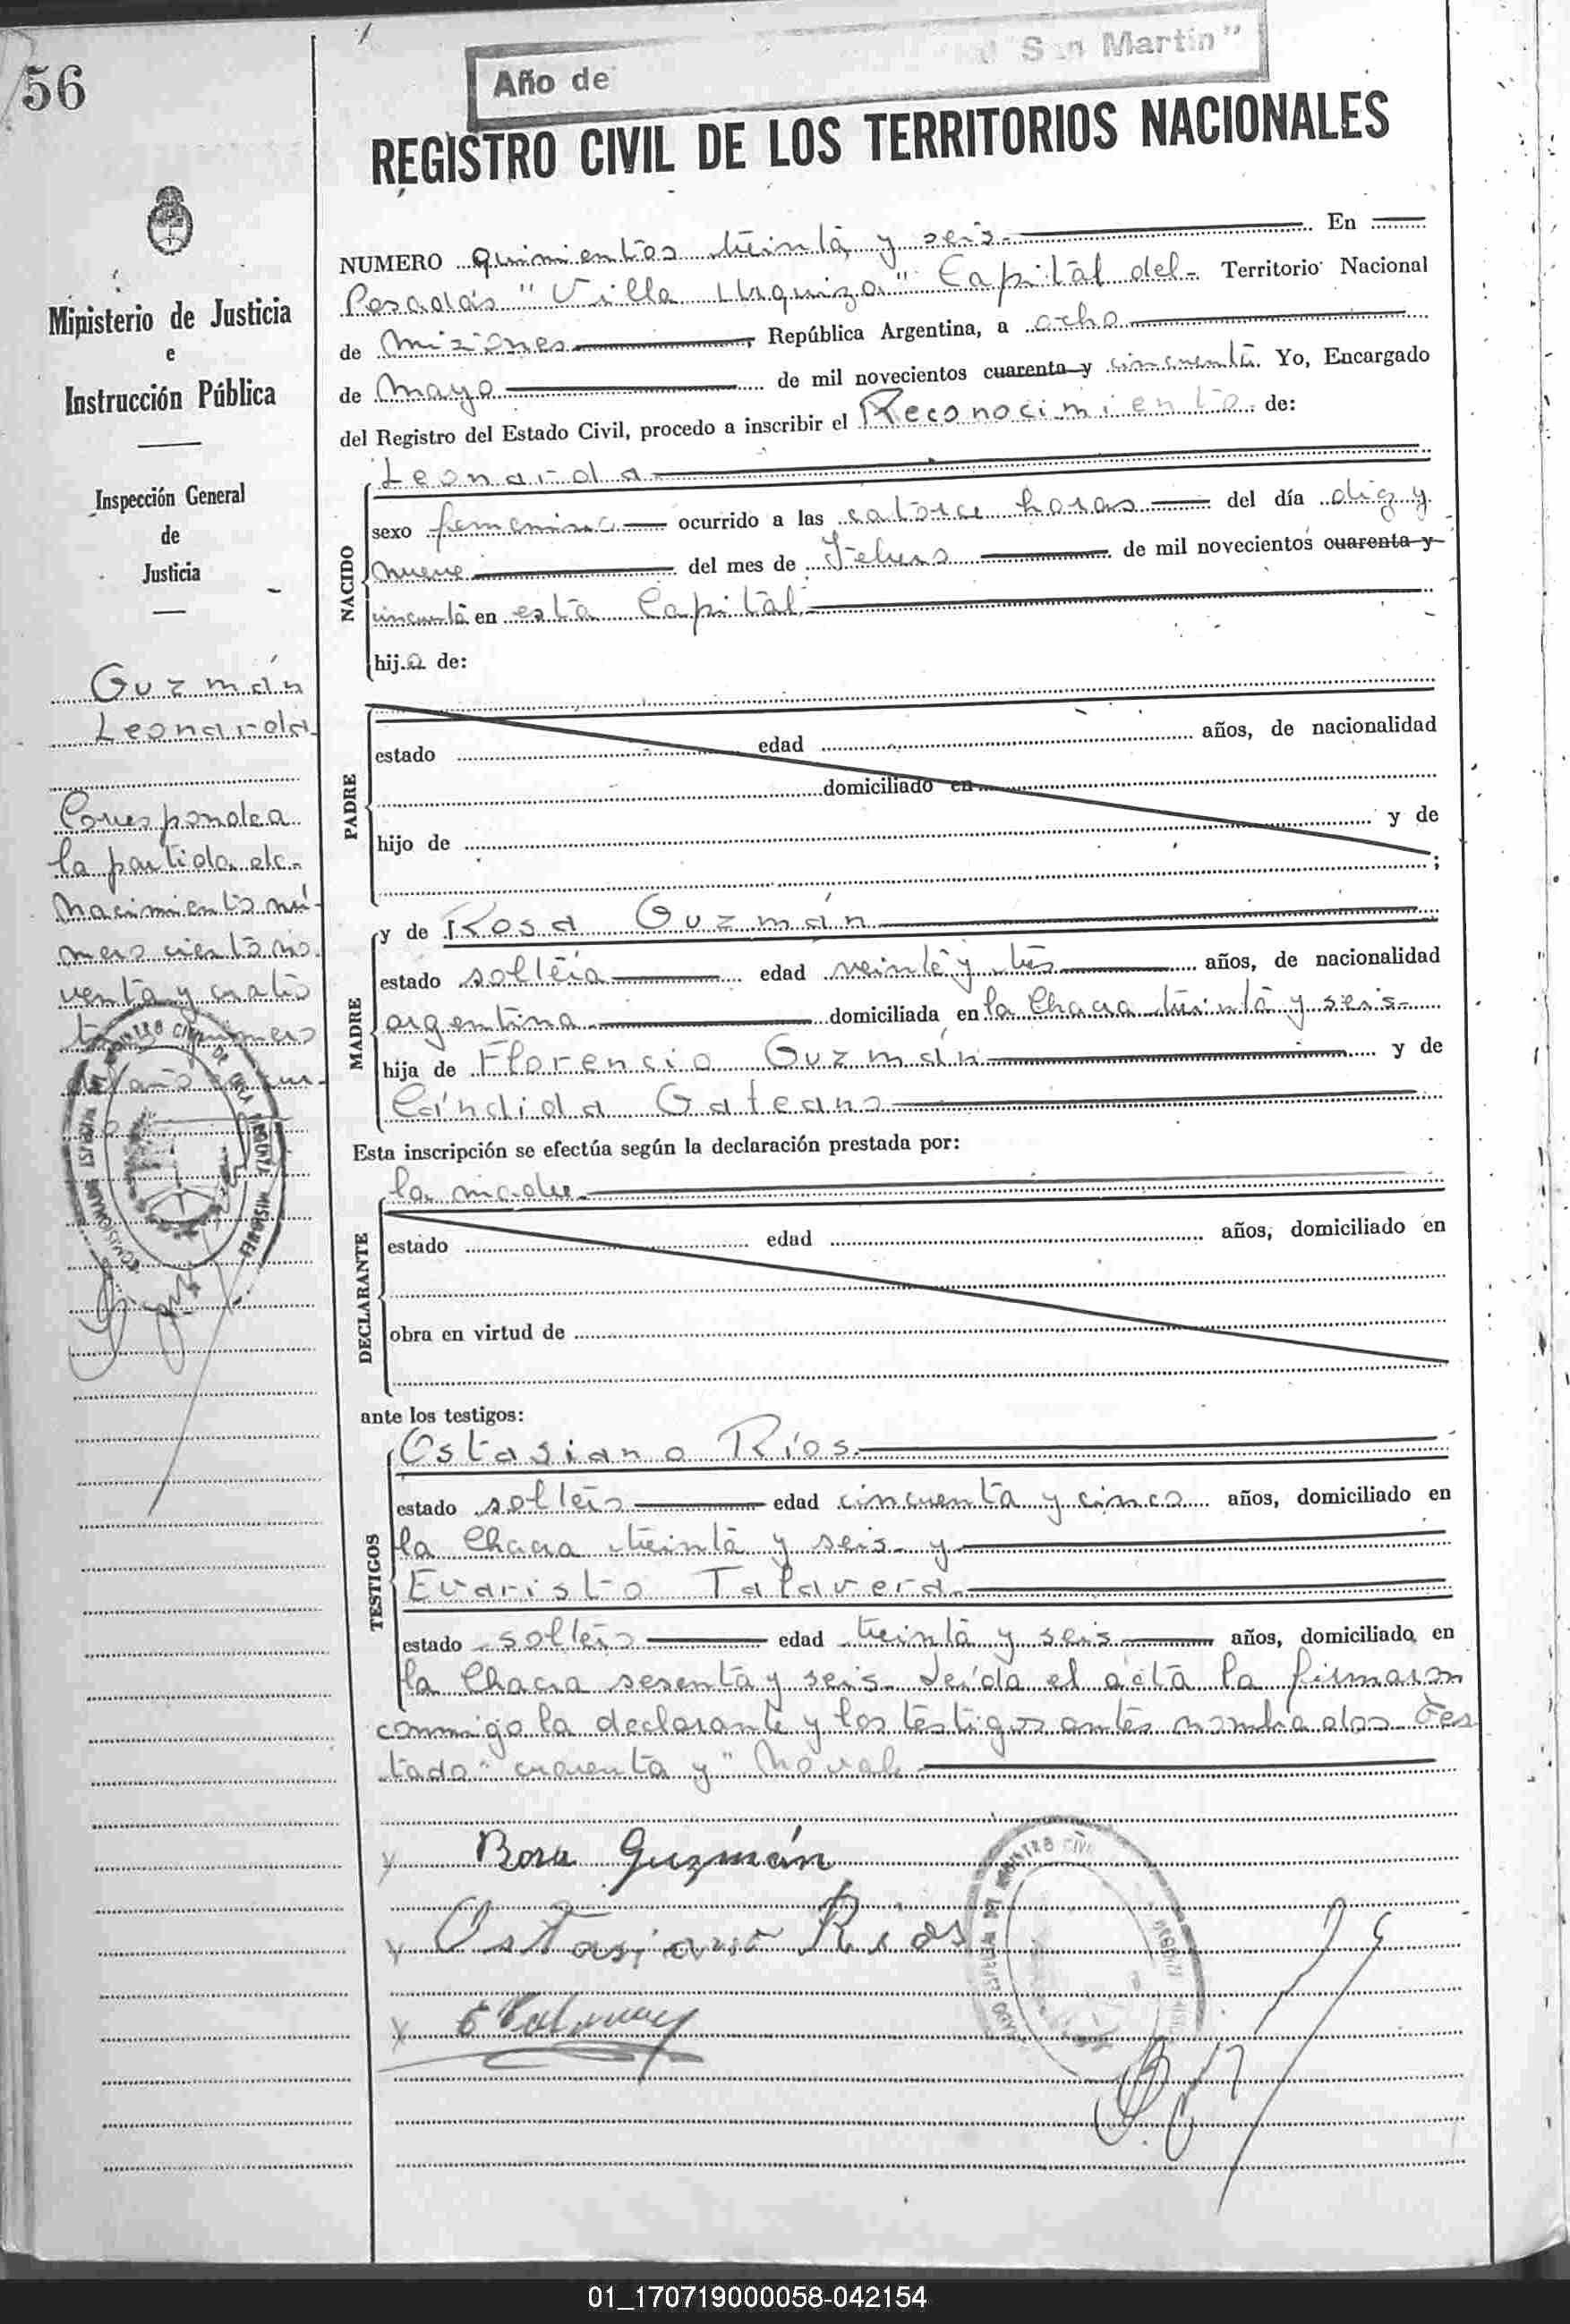 56
Año de San Martín"
REGISTRO CIVIL DE LOS TERRITORIOS NACIONALES
Ministerio de Justicia
e
Instrucción Pública
Inspección General
de
Justicia
Guzmán
Leonarda
Corresponde a
la partida de
Nacimiento nú-
mero ciento no
venta y cuatro
tomo primero
del año en cur-
NUMERO quinientos treinta y seis. En
Posadas "Villa Urquiza" Capital del- Territorio Nacional
de Misiones, República Argentina, a ocho
de Mayo de mil novecientos cuarenta y cincuenta. Yo, Encargado
del Registro del Estado Civil, procedo a inscribir el Reconocimiento de:
NACIDO
Leonarda
sexo femenino ocurrido a las catorce horas del día diez y
nueve del mes de Febrero de mil novecientos cuarenta y
cincuenta en esta Capital
hija de:
PADRE
estado edad años, de nacionalidad
domiciliado en
hijo de y de
;
MADRE
y de Rosa Guzmán
estado soltera edad veinte y tres años, de nacionalidad
argentina domiciliada en la Chacra treinta y seis
hija de Florencio Guzmán y de
Cándida Gateano
Esta inscripción se efectúa según la declaración prestada por:
la madre
DECLARANTE
estado edad años, domiciliado en
obra en virtud de
ante los testigos:
TESTIGOS
Ostasiano Ríos
estado soltero edad cincuenta y cinco años, domiciliado en
la Chacra treinta y seis y
Evaristo Talavera
estado soltero edad treinta y seis años, domiciliado en
la Chacra sesenta y seis. Leída el acta la firmaron
conmigo la declarante y los testigos antes nombrados. Tes
tado "cuarenta y" No vale
Rosa Guzmán
Ostasiano Rios
01_170719000058-042154